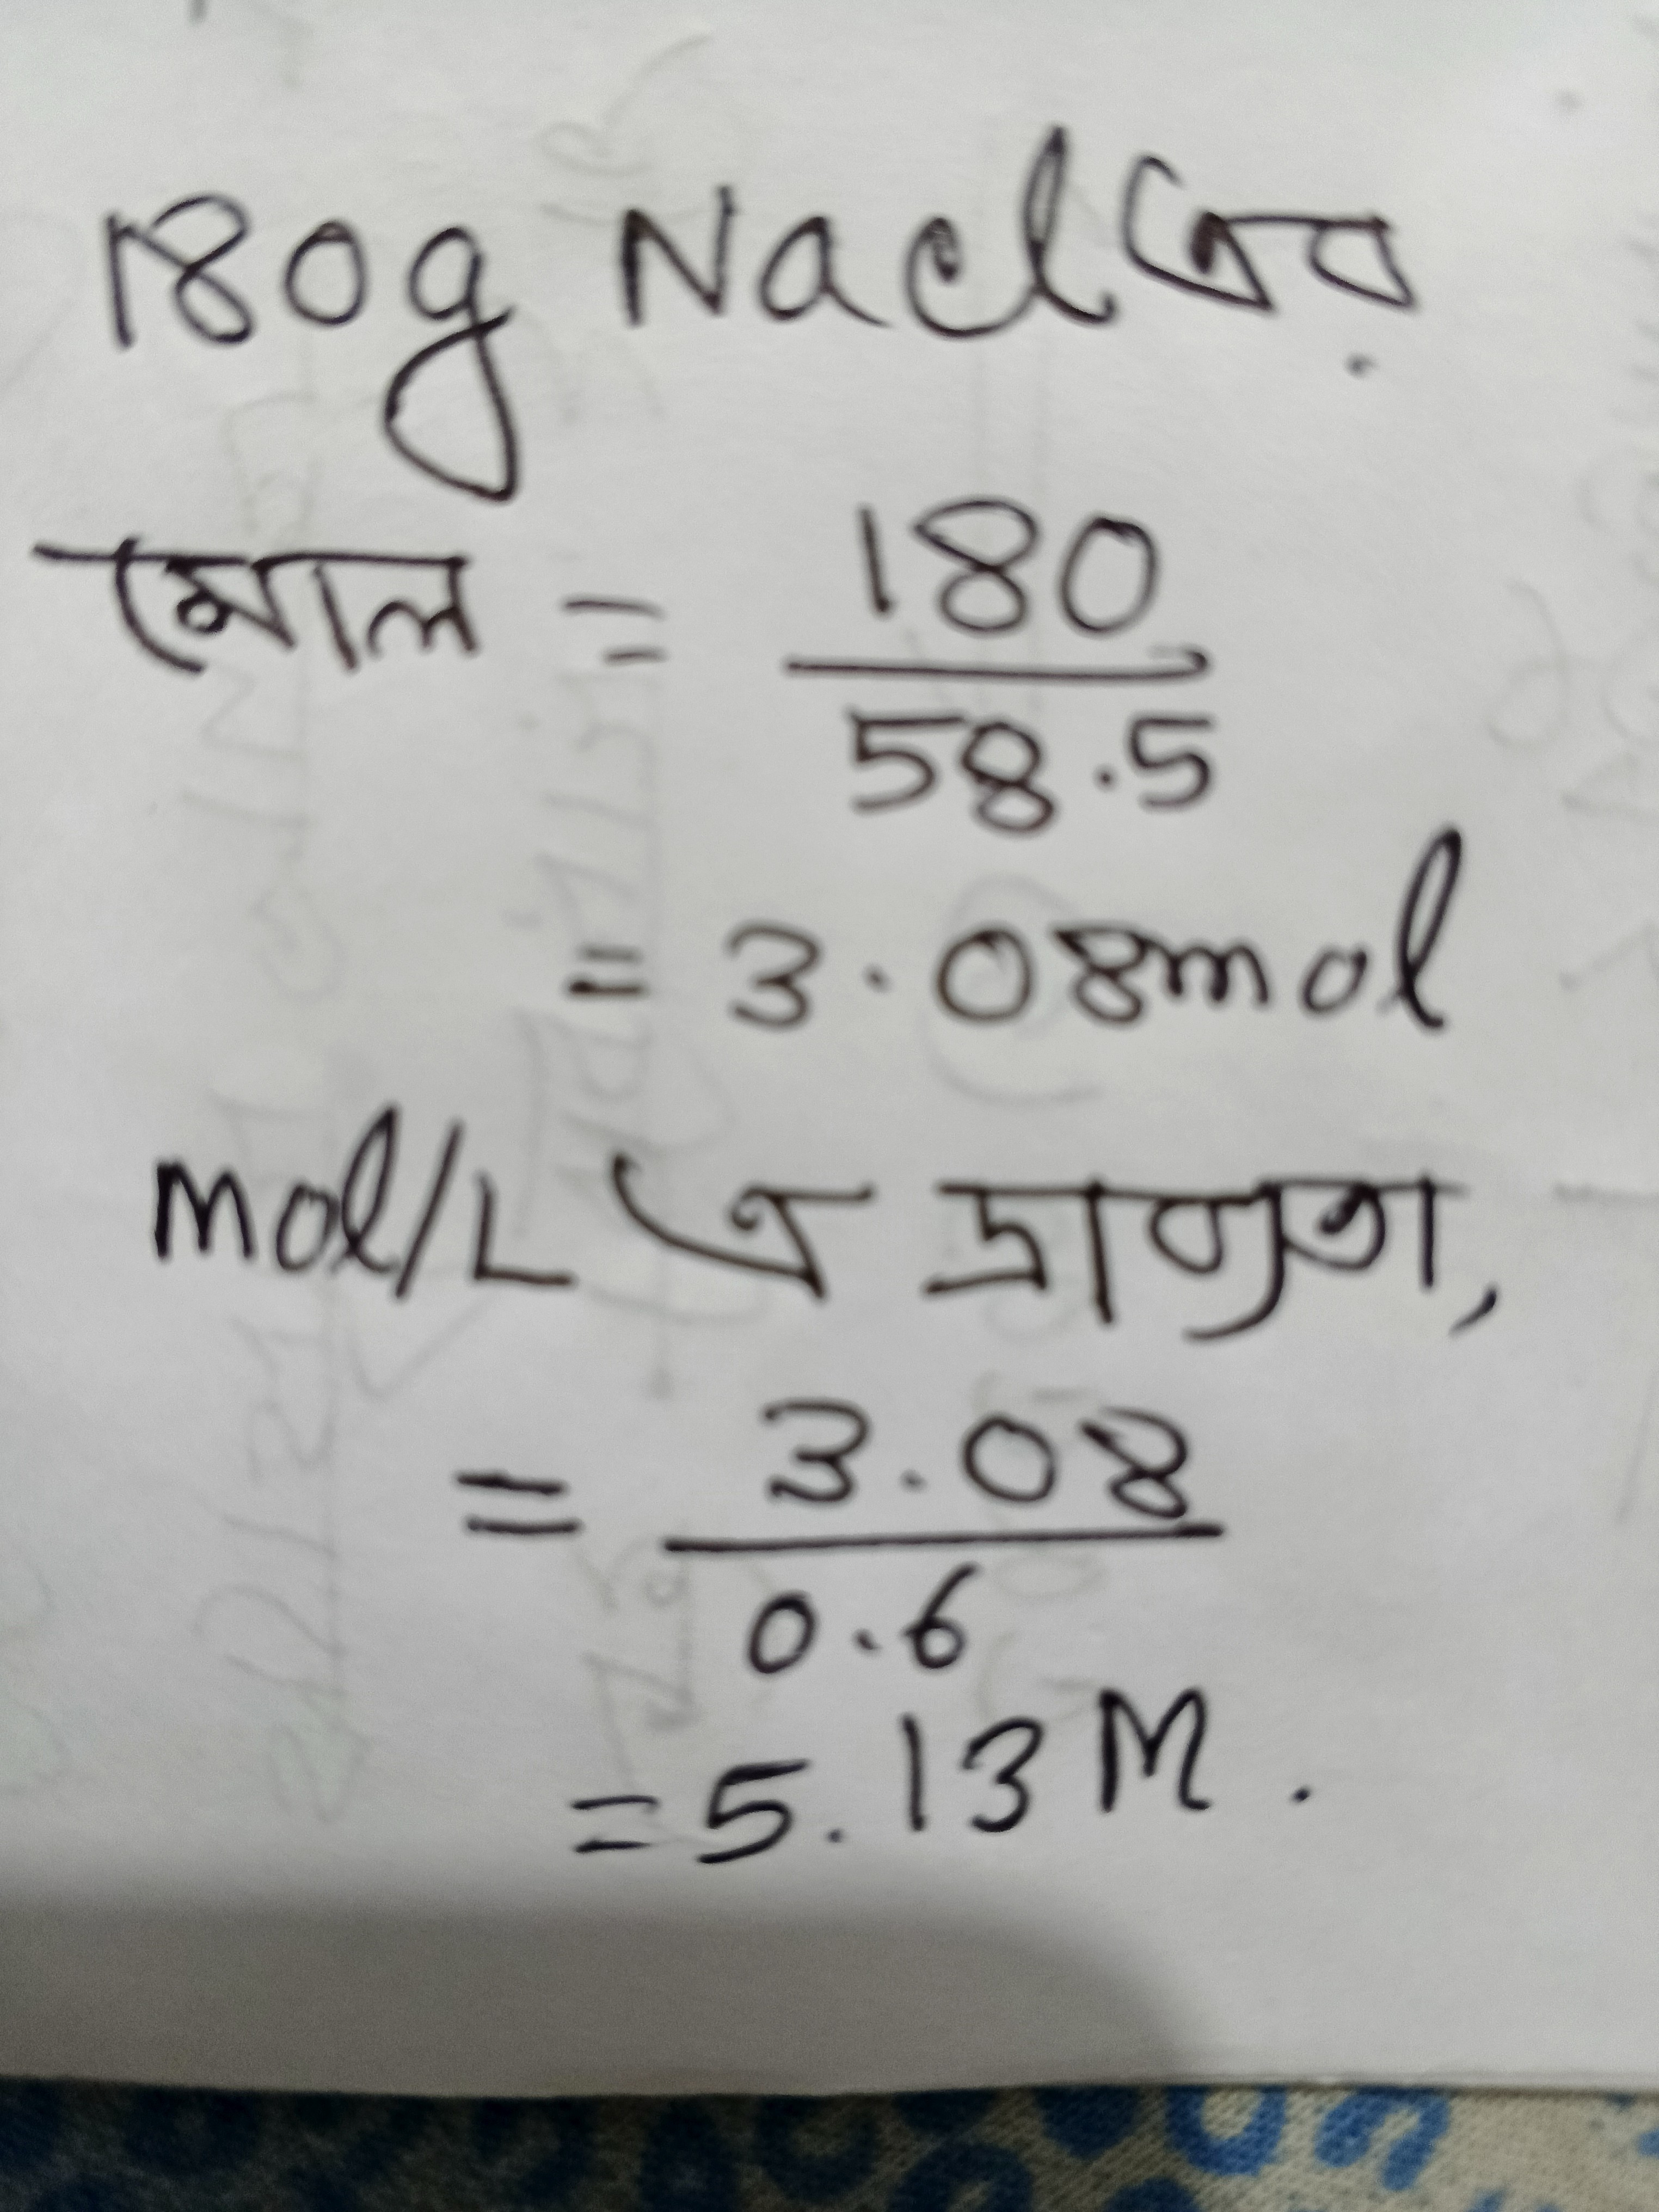 180g Naclএর
মোল = 180
58.5
= 3.08mol
mol/L এ দ্রাব্যতা,
= 3.08
0.6
= 5.13 M.